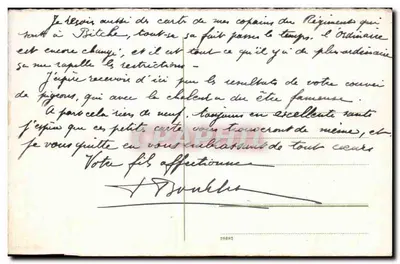 Je reçois aussi des carte de mes copains du Régiments qui
sont à Bitche, tout ça fait passer le temps. l'ordinaire
est encore changé, et il est tout ce qu'il y a de plus ordinaire
ça me rapelle les restrictions -
J'espère recevoir d'ici peu les resultats de votre
de pigeons, qui avec la chaleur a du être fameuse.
A part cela rien de neuf, toujours en excellente santé
j'espère que ces petite carte vous trouveront de meme, et
je vous quitte en vous embrassant de tout cœurs
Votre fils affectionné